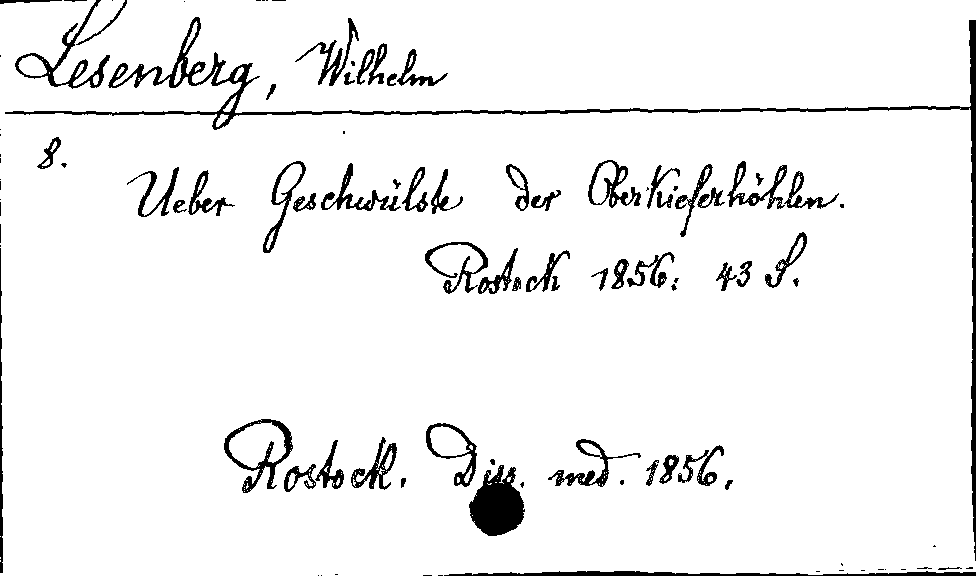 Lesenberg, Wilhelm
8.
Ueber Geschwülste der Oberkieferhöhlen.
Rostock 1856: 43 S.
Rostock. Diss. med. 1856.